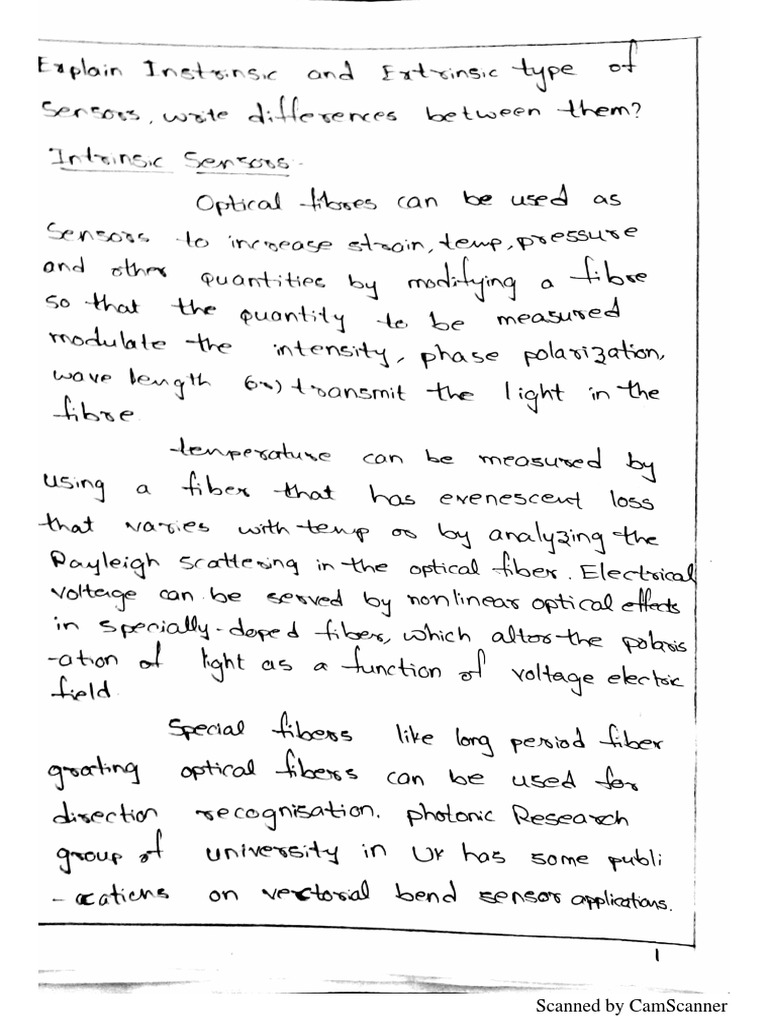 Explain Instrinsic and Extrinsic type of
sensors, write differences between them?
Intrinsic Sensors.
Optical fibres can be used as
sensors to increase strain, temp, pressure
and other quantities by modifying a fibre
so that the quantity to be measured
modulate the intensity, phase polarization,
wave length (or) transmit the light in the
fibre.
temperature can be measured by
using a fiber that has evenescent loss
that varies with temp or by analyzing the
Rayleigh scattering in the optical fiber. Electrical
voltage can be served by nonlinear optical effects
in specially-doped fiber, which alter the polaris
-ation of light as a function of voltage electric
field.
Special fibers like long period fiber
grating optical fibers can be used for
direction recognisation. photonic Research
group of university in UK has some publi
-cations on vectorial bend sensor applications.
1
Scanned by CamScanner